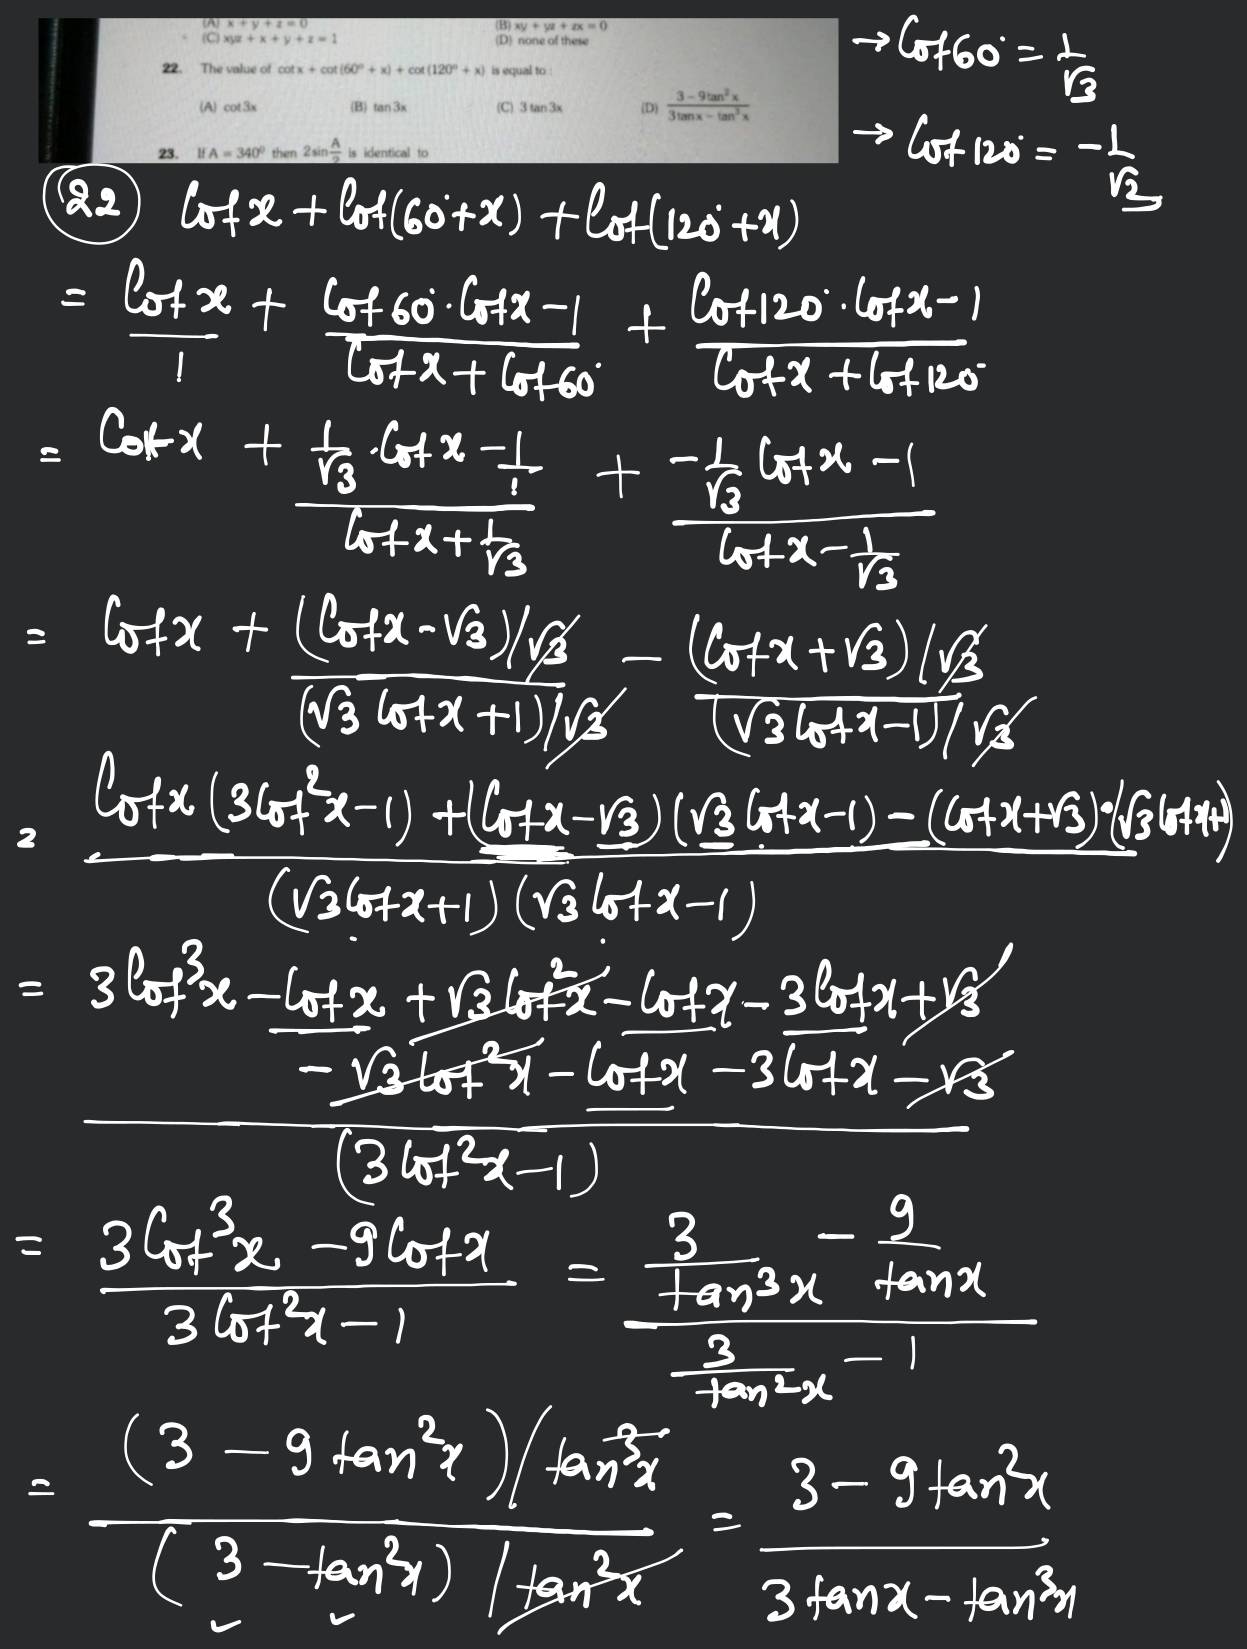 (A) x + y + z = 0 (B) xy + yz + zx = 0
(C) xyz + x + y + z = 1 (D) none of these
22. The value of cot x + cot (60° + x) + cot (120° + x) is equal to :
(A) cot 3x (B) tan 3x (C) 3 tan 3x (D) (3 – 9 tan² x)/(3 tan x – tan³ x)
23. If A = 340° then 2 sin A/2 is identical to
→ Cot 60° = 1/√3
→ Cot 120° = -1/√3
22 Cot x + Cot(60°+x) + Cot(120°+x)
= Cot x/1 + (Cot 60°·Cot x - 1)/(Cot x + Cot 60°) + (Cot 120°·Cot x - 1)/(Cot x + Cot 120°)
= Cot x + (1/√3·Cot x - 1/1)/(Cot x + 1/√3) + (-1/√3 Cot x - 1)/(Cot x - 1/√3)
= Cot x + ((Cot x - √3)/√3)/((√3 Cot x + 1)/√3) - ((Cot x + √3)/√3)/((√3 Cot x - 1)/√3)
= (Cot x (3Cot²x - 1) + (Cot x - √3)(√3 Cot x - 1) - (Cot x + √3)·(√3 Cot x + 1))/((√3 Cot x + 1)(√3 Cot x - 1))
= 3Cot³x - Cot x + √3 Cot²x - Cot x - 3Cot x + √3
- √3 Cot²x - Cot x - 3Cot x - √3
(3Cot²x - 1)
= (3Cot³x - 9Cot x)/(3Cot²x - 1) = (3/tan³x - 9/tan x)/(3/tan²x - 1)
= ((3 - 9 tan²x)/tan³x)/((3 - tan²x)/tan²x) = (3 - 9 tan²x)/(3 tan x - tan³x)